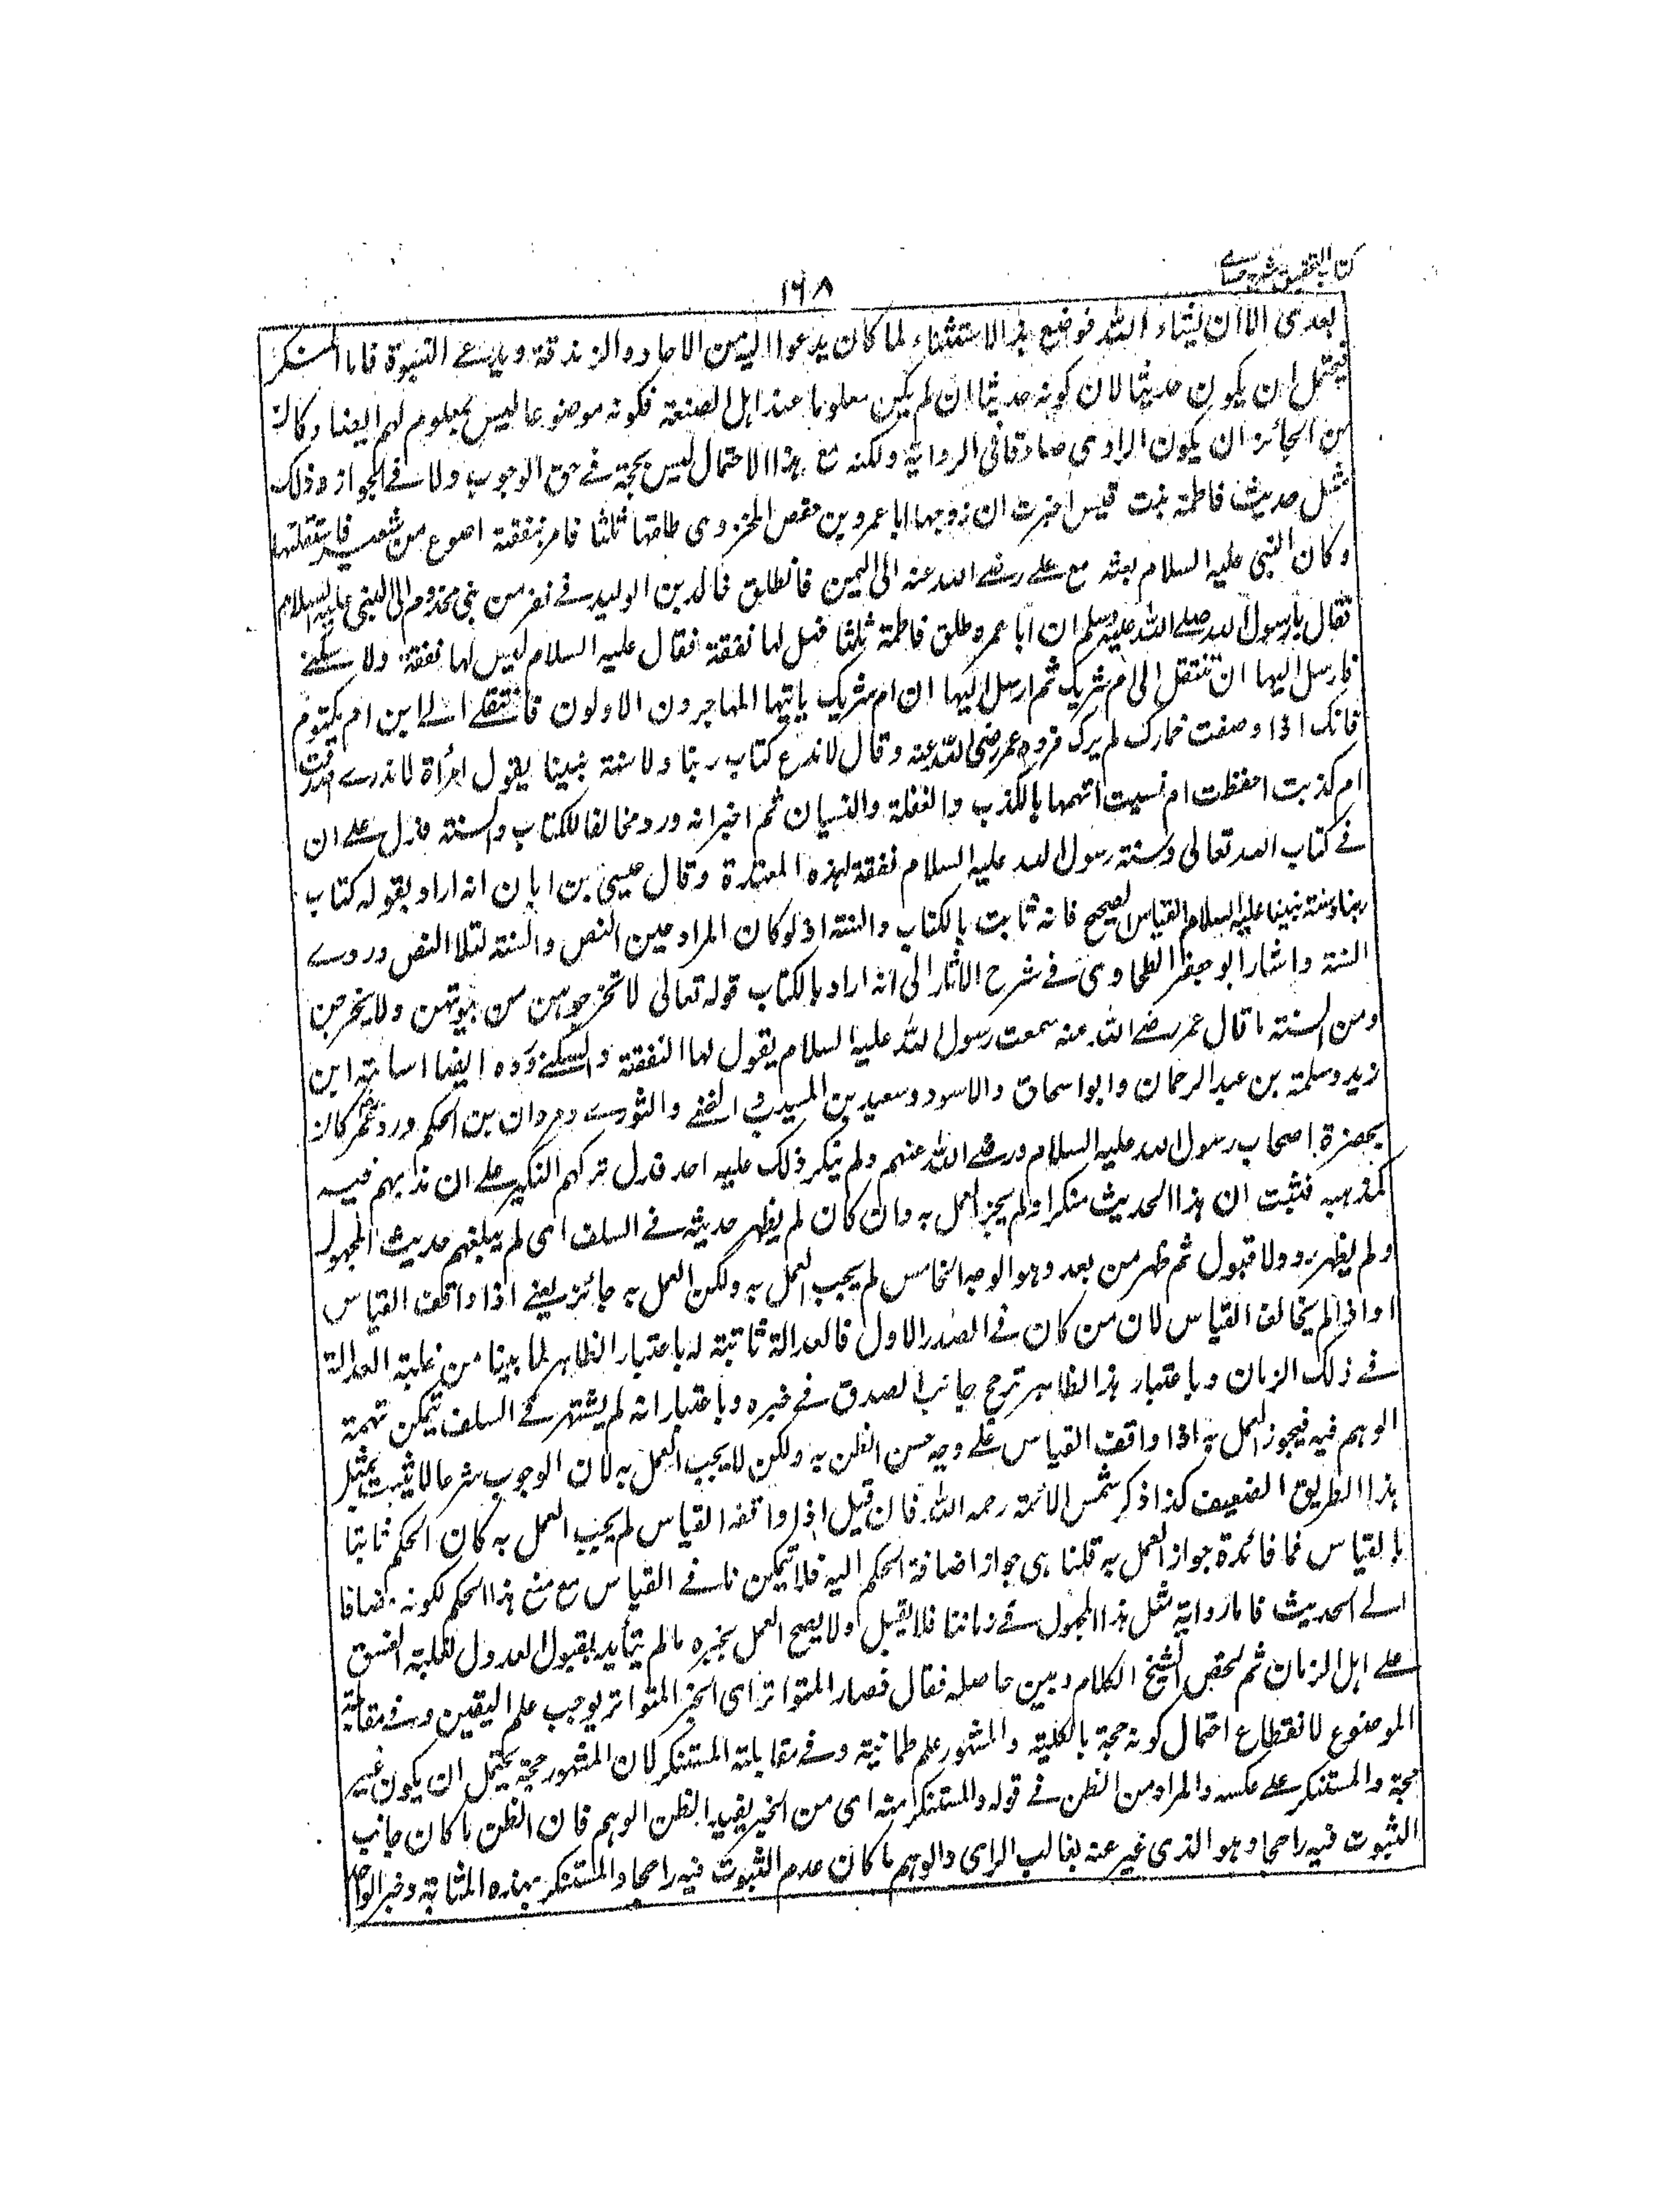 كتاب التحقيق شرح حسامى
١٦٨
بعدى الا ان يشاء الله فوضع هذا الاستثناء لما كان يدعوا اليه من الالحاد والزندقة ويدعى النبوة فاما المستنكر
فيحتمل ان يكون حديثا لان كونه حديثا ان لم يكن معلوما عند اهل الصنعة فكونه موضوعا ليس بمعلوم لهم ايضا وكان
من الجائز ان يكون الراوى صادقا فى الرواية ولكنه مع هذا الاحتمال ليس بحجة فى حق الوجوب ولا فى الجواز وذلك
مثل حديث فاطمة بنت قيس اخبرت ان زوجها ابا عمرو بن حفص المخزومى طلقها ثلثا فامر بنفقة اصوع من شعير فاستقلتها
وكان النبى عليه السلام بعثه مع على رضى الله عنه الى اليمن فانطلق خالد بن الوليد فى نفر من بنى مخزوم الى النبى عليه السلام
فقال يا رسول الله صلى الله عليه وسلم ان ابا عمرو طلق فاطمة ثلثا فهل لها نفقة فقال عليه السلام ليس لها نفقة ولا سكنى
فارسل اليها ان تنتقل الى ام شريك ثم ارسل اليها ان ام شريك ياتيها المهاجرون الاولون فانتقلى الى ابن ام مكتوم
فانك اذا وضعت خمارك لم يرك فرده عمر رضى الله عنه وقال لا ندع كتاب ربنا ولا سنة نبينا بقول امرأة لا ندرى اصدقت
ام كذبت احفظت ام نسيت اتهمها بالكذب والغفلة والنسيان ثم اخبر انه ورد مخالفا للكتاب والسنة فدل على ان
فى كتاب الله تعالى وسنة رسول الله عليه السلام نفقة لهذه المعتدة وقال عيسى بن ابان انه اراد بقوله كتاب
ربنا وسنة نبينا عليه السلام القياس الصحيح فانه ثابت بالكتاب والسنة اذ لو كان المراد عين النص والسنة لتلا النص وروى
السنة واشار ابو جعفر الطحاوى فى شرح الاثار الى انه اراد بالكتاب قوله تعالى لا تخرجوهن من بيوتهن ولا يخرجن
ومن السنة ما قال عمر رضى الله عنه سمعت رسول الله عليه السلام يقول لها النفقة والسكنى ورده ايضا اسامة ابن
زيد وسلمة بن عبد الرحمان وابو اسحاق والاسود وسعيد بن المسيب والنخعى والثورى ومروان بن الحكم ورد عمر كان
بحضرة اصحاب رسول الله عليه السلام ورضى الله عنهم ولم ينكر ذلك عليه احد فدل تركهم النكير على ان مذهبهم فيه
كمذهبه فثبت ان هذا الحديث منكر او لم يجز العمل به وان كان لم يظهر حديثه فى السلف اى لم يبلغهم حديث المجهول
ولم يظهر رد ولا قبول ثم ظهر من بعد وهو الوجه الخامس لم يجب العمل به ولكن العمل به جائز يعنى اذا وافق القياس
او اذا لم يخالف القياس لان من كان فى الصدر الاول فالعدالة ثابتة له باعتبار الظاهر لما بينا من غلبة العدالة
فى ذلك الزمان وباعتبار هذا الظاهر ترجح جانب الصدق فى خبره وباعتبار انه لم يشتهر فى السلف يتمكن تهمة
الوهم فيه فيجوز العمل به اذا وافق القياس على وجه حسن الظن به ولكن لا يجب العمل به لان الوجوب شرعا لا يثبت بمثل
هذا الطريق الضعيف كذا ذكر شمس الائمة رحمه الله فان قيل اذا وافقه القياس لم يجب العمل به كان الحكم ثابتا
بالقياس فما فائدة جواز العمل به قلنا هى جواز اضافة الحكم اليه فلا يتمكن نافى القياس مع منع هذا الحكم لكونه مضافا
الى الحديث فاما رواية مثل هذا المجهول فى زماننا فلا يقبل ولا يصح العمل بخبره ما لم يتأيد بقبول العدول لغلبة الفسق
على اهل الزمان ثم لخص الشيخ الكلام وبين حاصله فقال فصار المتواتر اى الخبر المتواتر يوجب علم اليقين وفى مقابلته
الموضوع لانقطاع احتمال كونه حجة بالكلية والمشهور علم طمانية وفى مقابلته المستنكر لان المشهور حجة يحتمل ان يكون غير
حجة والمستنكر على عكسه والمراد من الظن فى قوله والمستنكر منه اى من الخبر يفيد الظن الوهم فان الظن ما كان جانب
الثبوت فيه راجحا وهو الذى عبر عنه بغالب الراى والوهم ما كان عدم الثبوت فيه راجحا والمستنكر بهذه المثابة وخبر الواحد